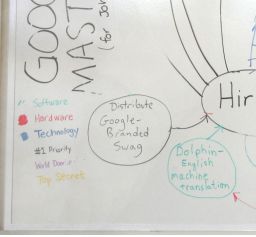 GOOG
MAST
(for Jon
Software
Hardware
Technology
#1 Priority
Top Secret
Distribute
Google-
Branded
Swag
Hir
Dolphin-
English
machine
translation